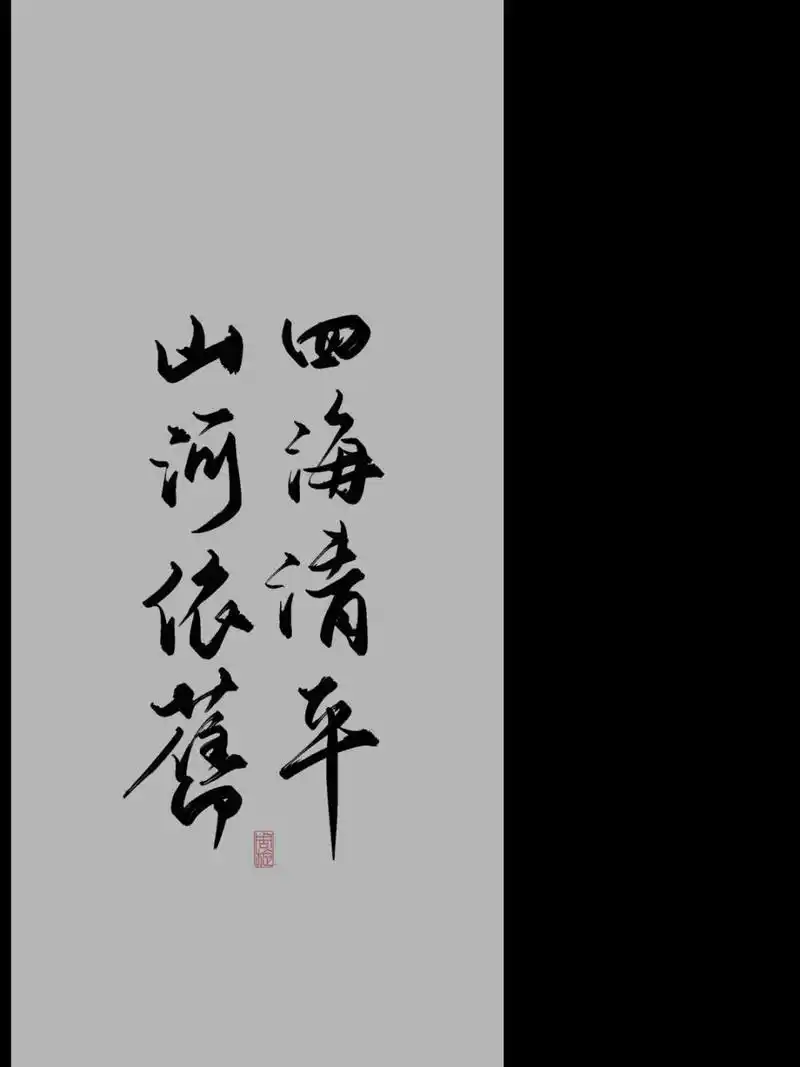 四海清平
山河依舊